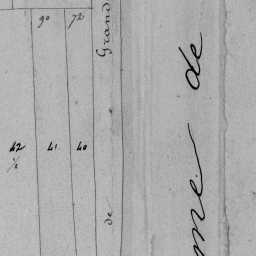 90 72
42 41 40
½
Grand
de
me de